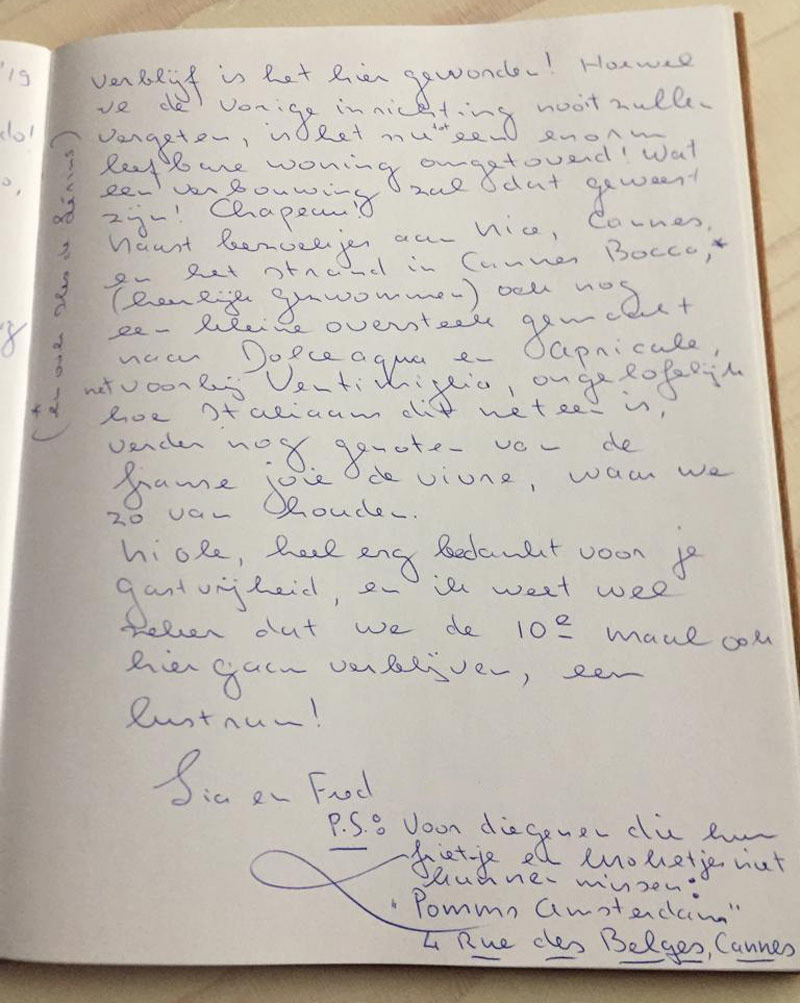 '19
do!
verblijf is het hier geworden! Hoewel
we de vorige inrichting nooit zullen
vergeten, is het nu tot een enorm
leefbare woning omgetoverd! Wat
een verbouwing zal dat geweest
zijn! Chapeau!
Naast bezoekjes aan Nice, Cannes,
en het strand in Cannes Bocca,*
(heerlijk gezwommen) ook nog
een kleine oversteek gemaakt
naar Dolceaqua en Apricale,
net voorbij Ventimiglia, ongelofelijk
hoe Italiaans dit meteen is,
verder nog genoten van de
franse joie de vivre, waar we
zo van houden.
heel erg bedankt voor je
gastvrijheid, en ik weet wel
zeker dat we de 10e maal ook
hier gaan verblijven, een
lustrum!
en Fred
P.S.: Voor diegenen die hun
frietje en krokejes niet
kunnen missen:
"Pomms Amsterdam"
4 Rue des Belges, Cannes
(* en ook Iles de Lérins)